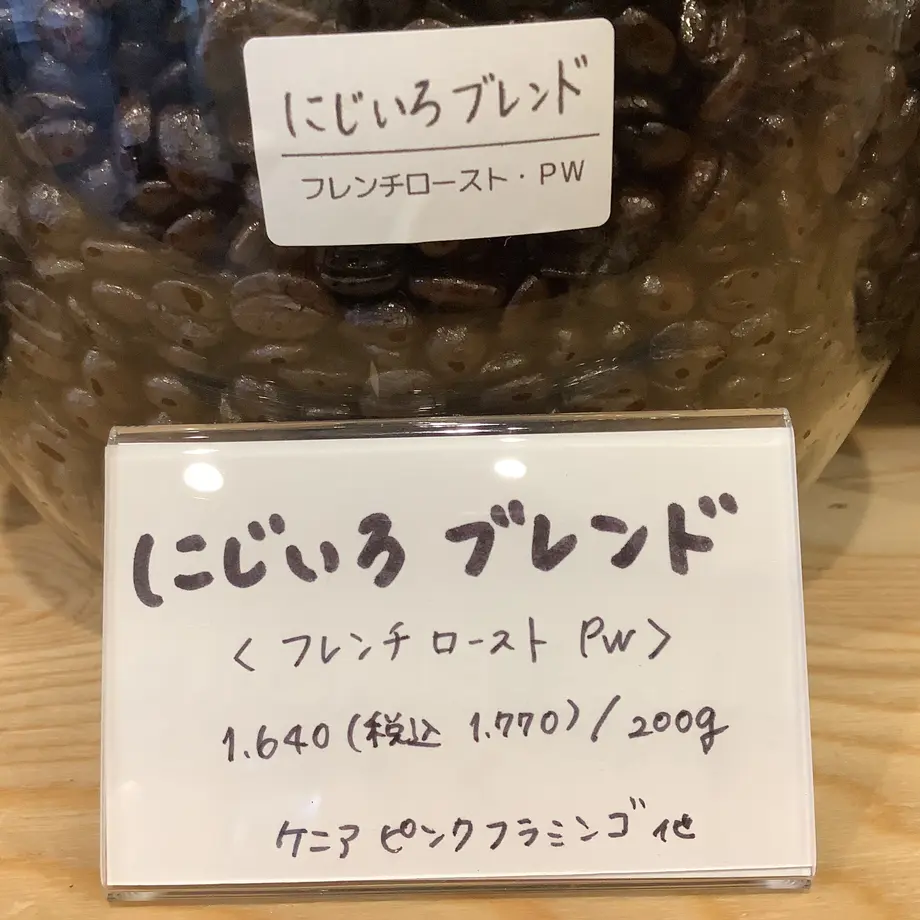 にじいろブレンド
フレンチロースト・PW
にじいろ ブレンド
<フレンチ ロースト PW>
1.640(税込 1.770)/200g
ケニア ピンクフラミンゴ 他